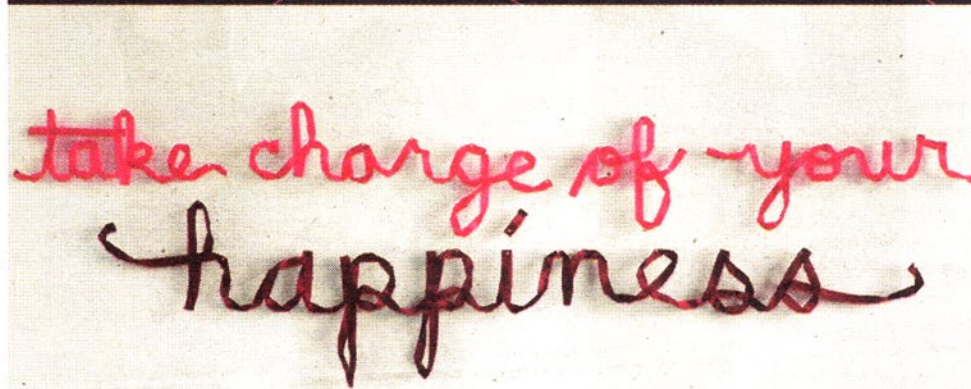 take charge of your
happiness